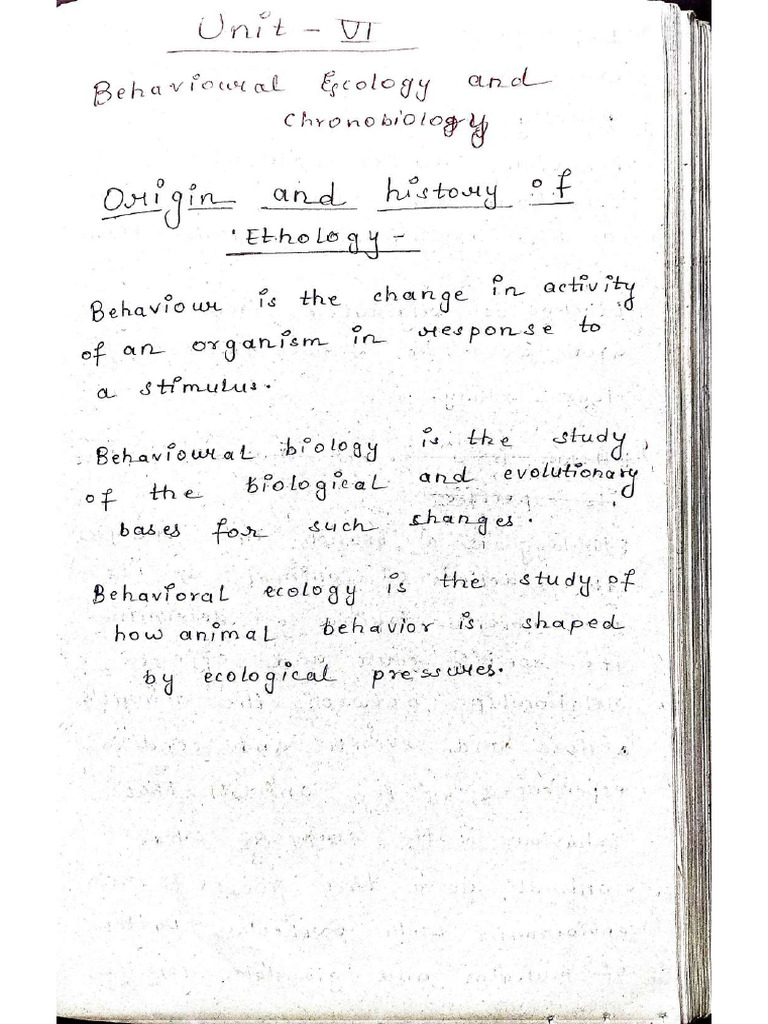 Unit - VI
Behavioural Ecology and
Chronobiology
Origin and history of
'Ethology -
Behaviour is the change in activity
of an organism in response to
a stimulus.
Behavioural biology is the study
of the biological and evolutionary
bases for such changes.
Behavioral ecology is the study of
how animal behavior is shaped
by ecological pressures.